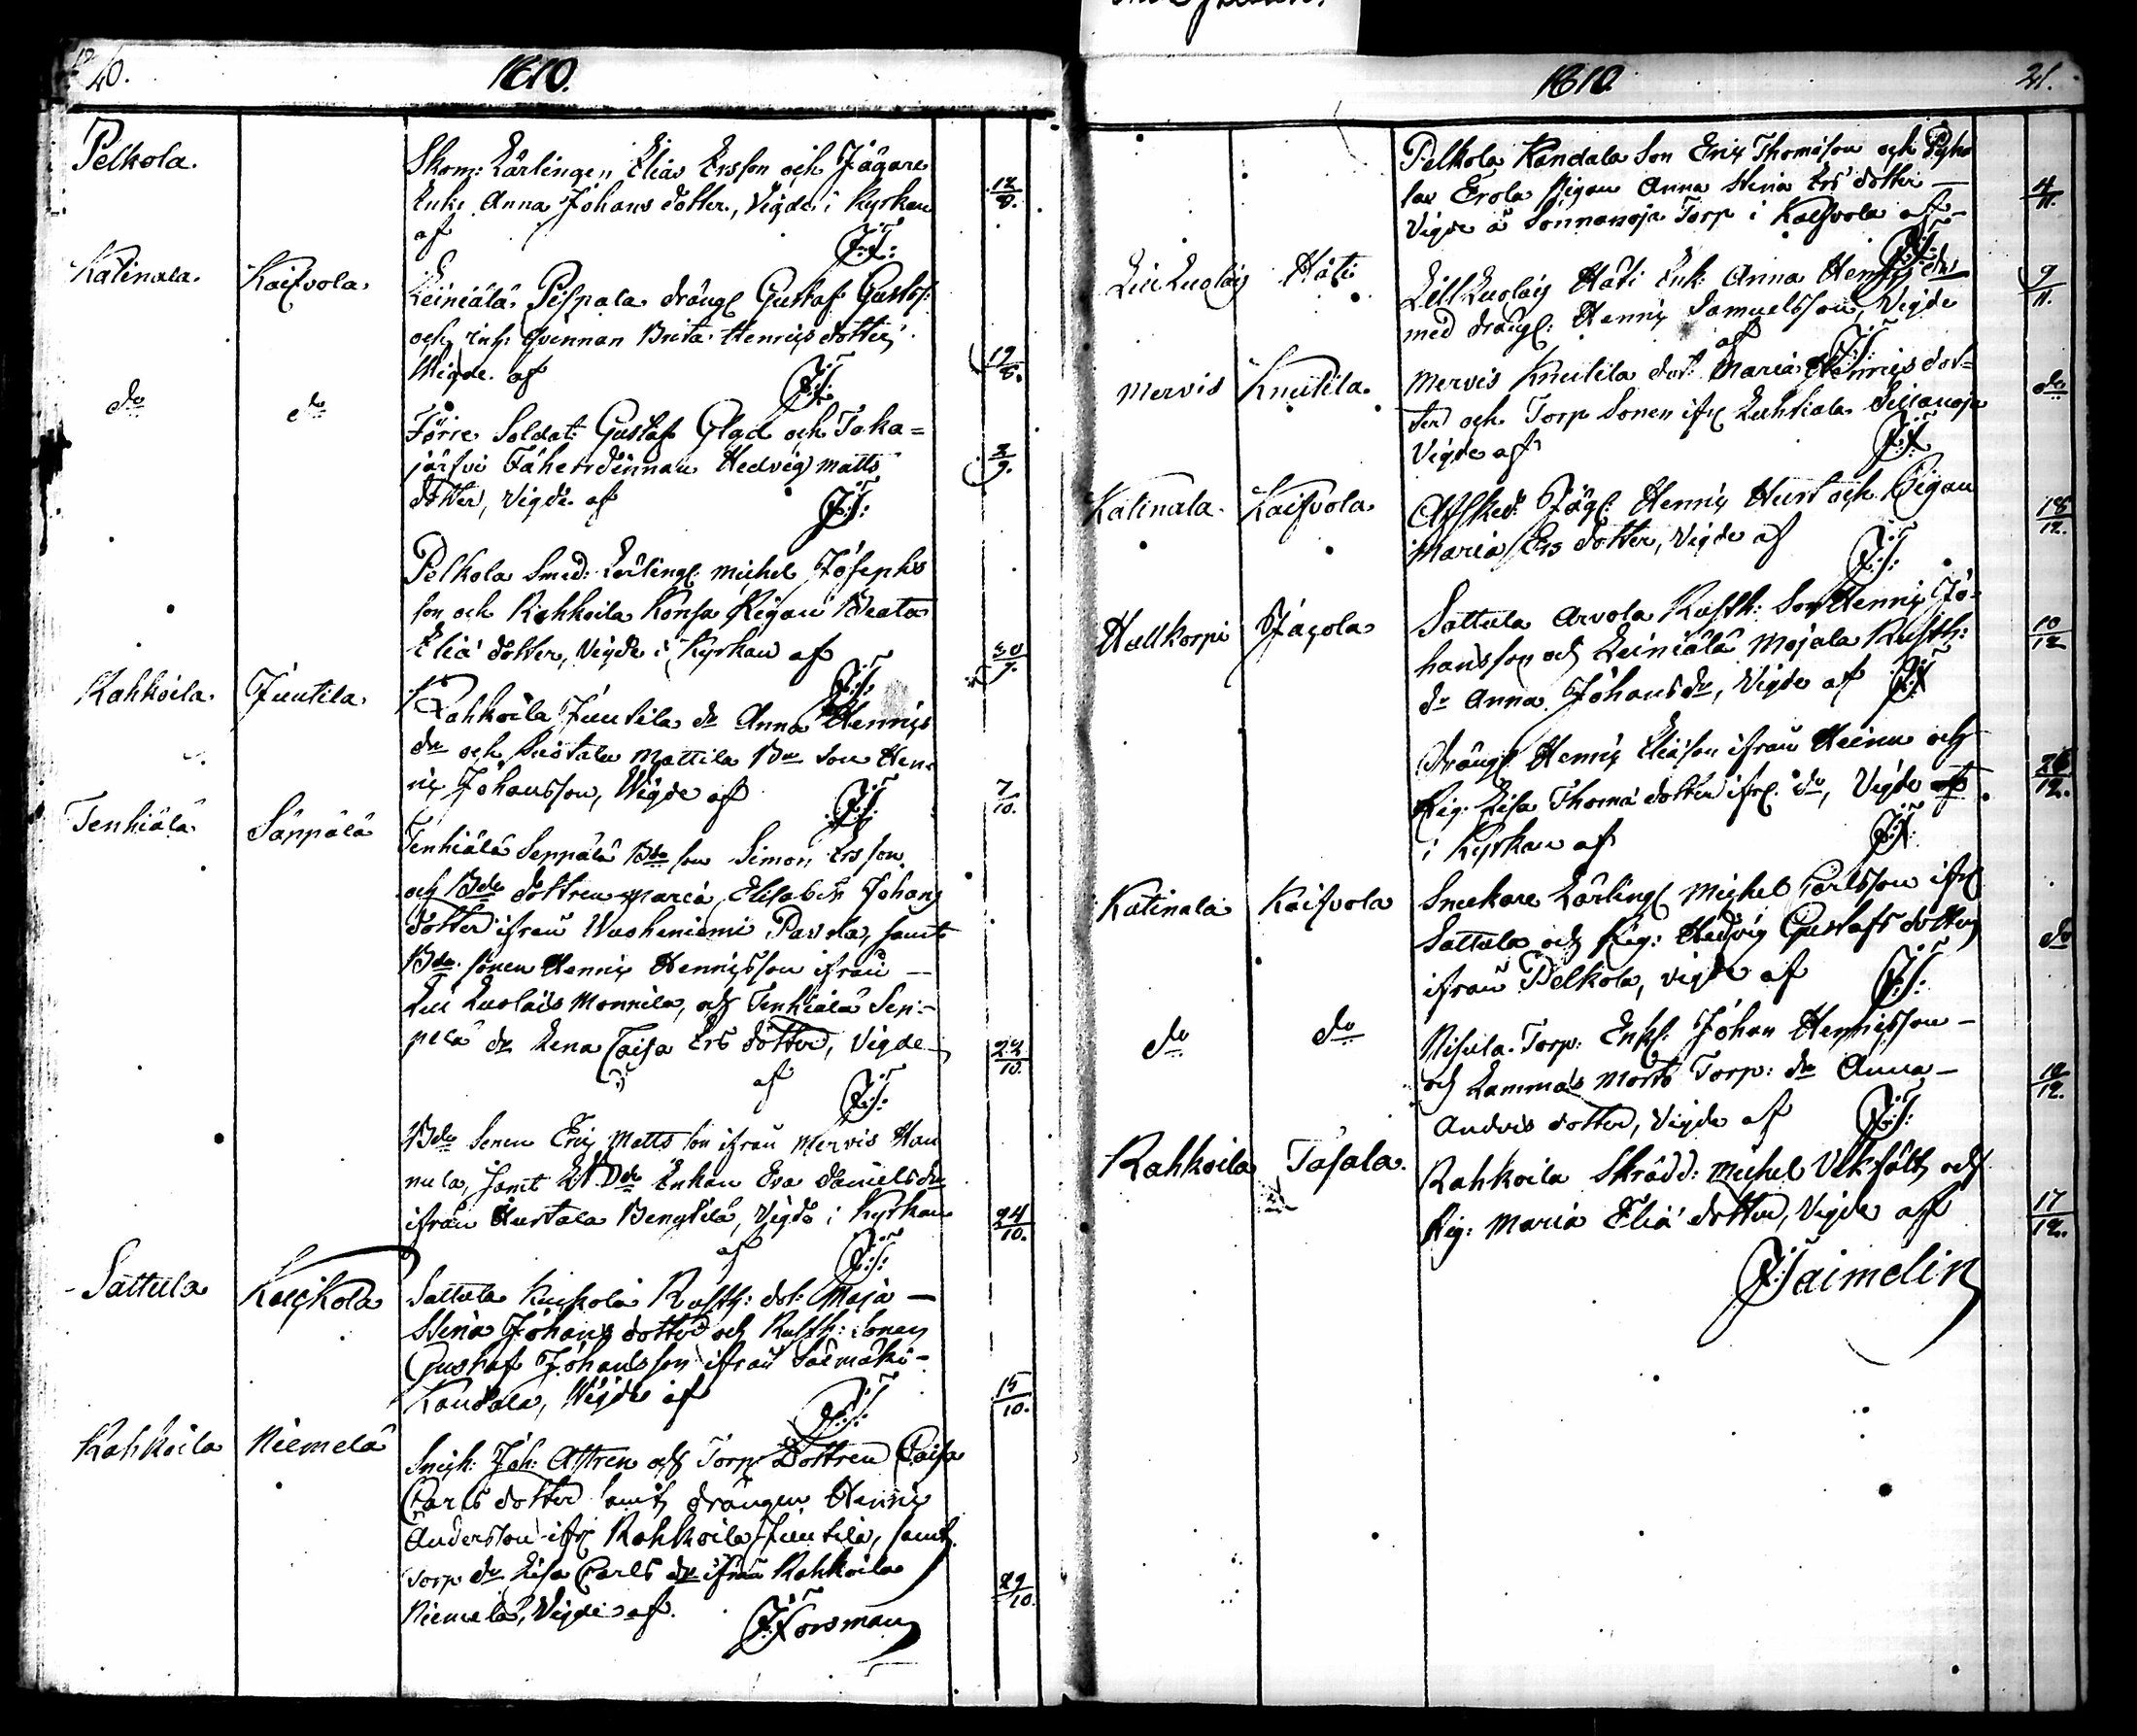 40.
1810.
Pelkola.
Skom: Lärlingen Elias Ersson och Jägare
Enk: Anna Johans dotter, Vigde i Kyrkan
af J.F.
12/8.
Katinala. Kaifvola.
Leiniälä Pispala drängl Gustaf Gustafs:
och inh: qvinnan Brita Henrics dotter
Wigde af J.F.
19/8.
do do
Förre Soldat: Gustaf Glad och Taka=
järfvi Fäherdinnan Hedvig Matts
dotter, Vigde af J.F:
2/9.
Pelkola Smed: Lärlingl: Michel Josephs
son och Rahkoila Konsa Pigan Beata
Eliä dotter, Vigde i Kyrkan af J.F:
30/9.
Rahkoila. Juutila.
Rahkoila Juutila dr Anna Henrics
dr och Mattila Bde son Hen
ric Johansson, Wigde af J.F.
7/10.
Tenhiälä Säppälä
Tenhiälä Seppälä Bde son Simon Ersson
och Bde dottren Maria Elisabet Johans
dotter ifrån Wuoheniemi Pavola, samt
Bde sonen Henric Henricsson ifrån —
Monnila, och Tenhiälä Sep=
pälä dr Lena Caisa Ers dotter, Vigde
af J.F:
22/10.
Bde Sonen Eric Matts son ifrån Mervis Han
nula, samt Bde Enkan Eva Daniels dr
ifrån Hurtala Bengtilä, Vigde i Kyrkan
af J.F:
24/10.
Sattula Kuckola
Sattula Kuckola Rusth: dot: Maja —
Stina Johans dotter och Rusth: Sonen
Gustaf Johansson ifrån Saemäki-
Kandala, Wigde af J.F:
15/10.
Rahkoila Niemelä
Snick: Joh: Astren och Torp: Dottren Caisa
Carls dotter samt drängen Henric
Andersson ifr: Rahkoila Juutila, samt
Torp dr Lisa Carls dr ifrån Rahkoila
Niemelä, Vigde af. J Forsman
29/10.
1810.
41.
Pelkola Kandala Son Eric Thomäson och
Erola Pigan Anna Stina Ers dotter —
Vigde å Sonnanoja Torp i Kalfvola af J.F.
4/11.
Häti
Häti Enk: Anna Henrics dr
med drängl: Henric Samuelsson, Vigde
af J.F:
9/11.
Mervis Knutila.
Mervis Knutila dot: Maria Henrics dot=
ter och Torp Sonen ifr:
Vigde af J.F.
do
Katinala. Kaifvola.
Afsked: Jäg: Henric Hurt och Pigan
Maria Ers dotter, Vigde af J.F:
18/12.
Hattkorpi Jacola
Sattula Arvola Rusth: Son Henric Jo-
hansson och Leiniälä Mojala Rusth:
dr Anna Johans dr, Vigde af J.F
10/12
drängl Henric Eliäson ifrån Heinu och
Pig: Lisa Thomä dotter ifr: do, Vigde af
i Kyrkan af J.F.
26/12.
Katinala Kaifvola
Snickare Lärlingl Michel Carlsson ifr:
Sattula och Pig: Hedvig Gustafs dotter
ifrån Pelkola, vigde af J.F:
do
do do
Nisula Torp: Enkl: Johan Henricsson —
och Lammais Torp: dr Anna —
Anders dotter, Vigde af J.F:
Rahkoila Tasala.
Rahkoila Skrädd: Michel och
Pig: Maria Eliä dotter, Vigde af
17/12.
J Haimelin